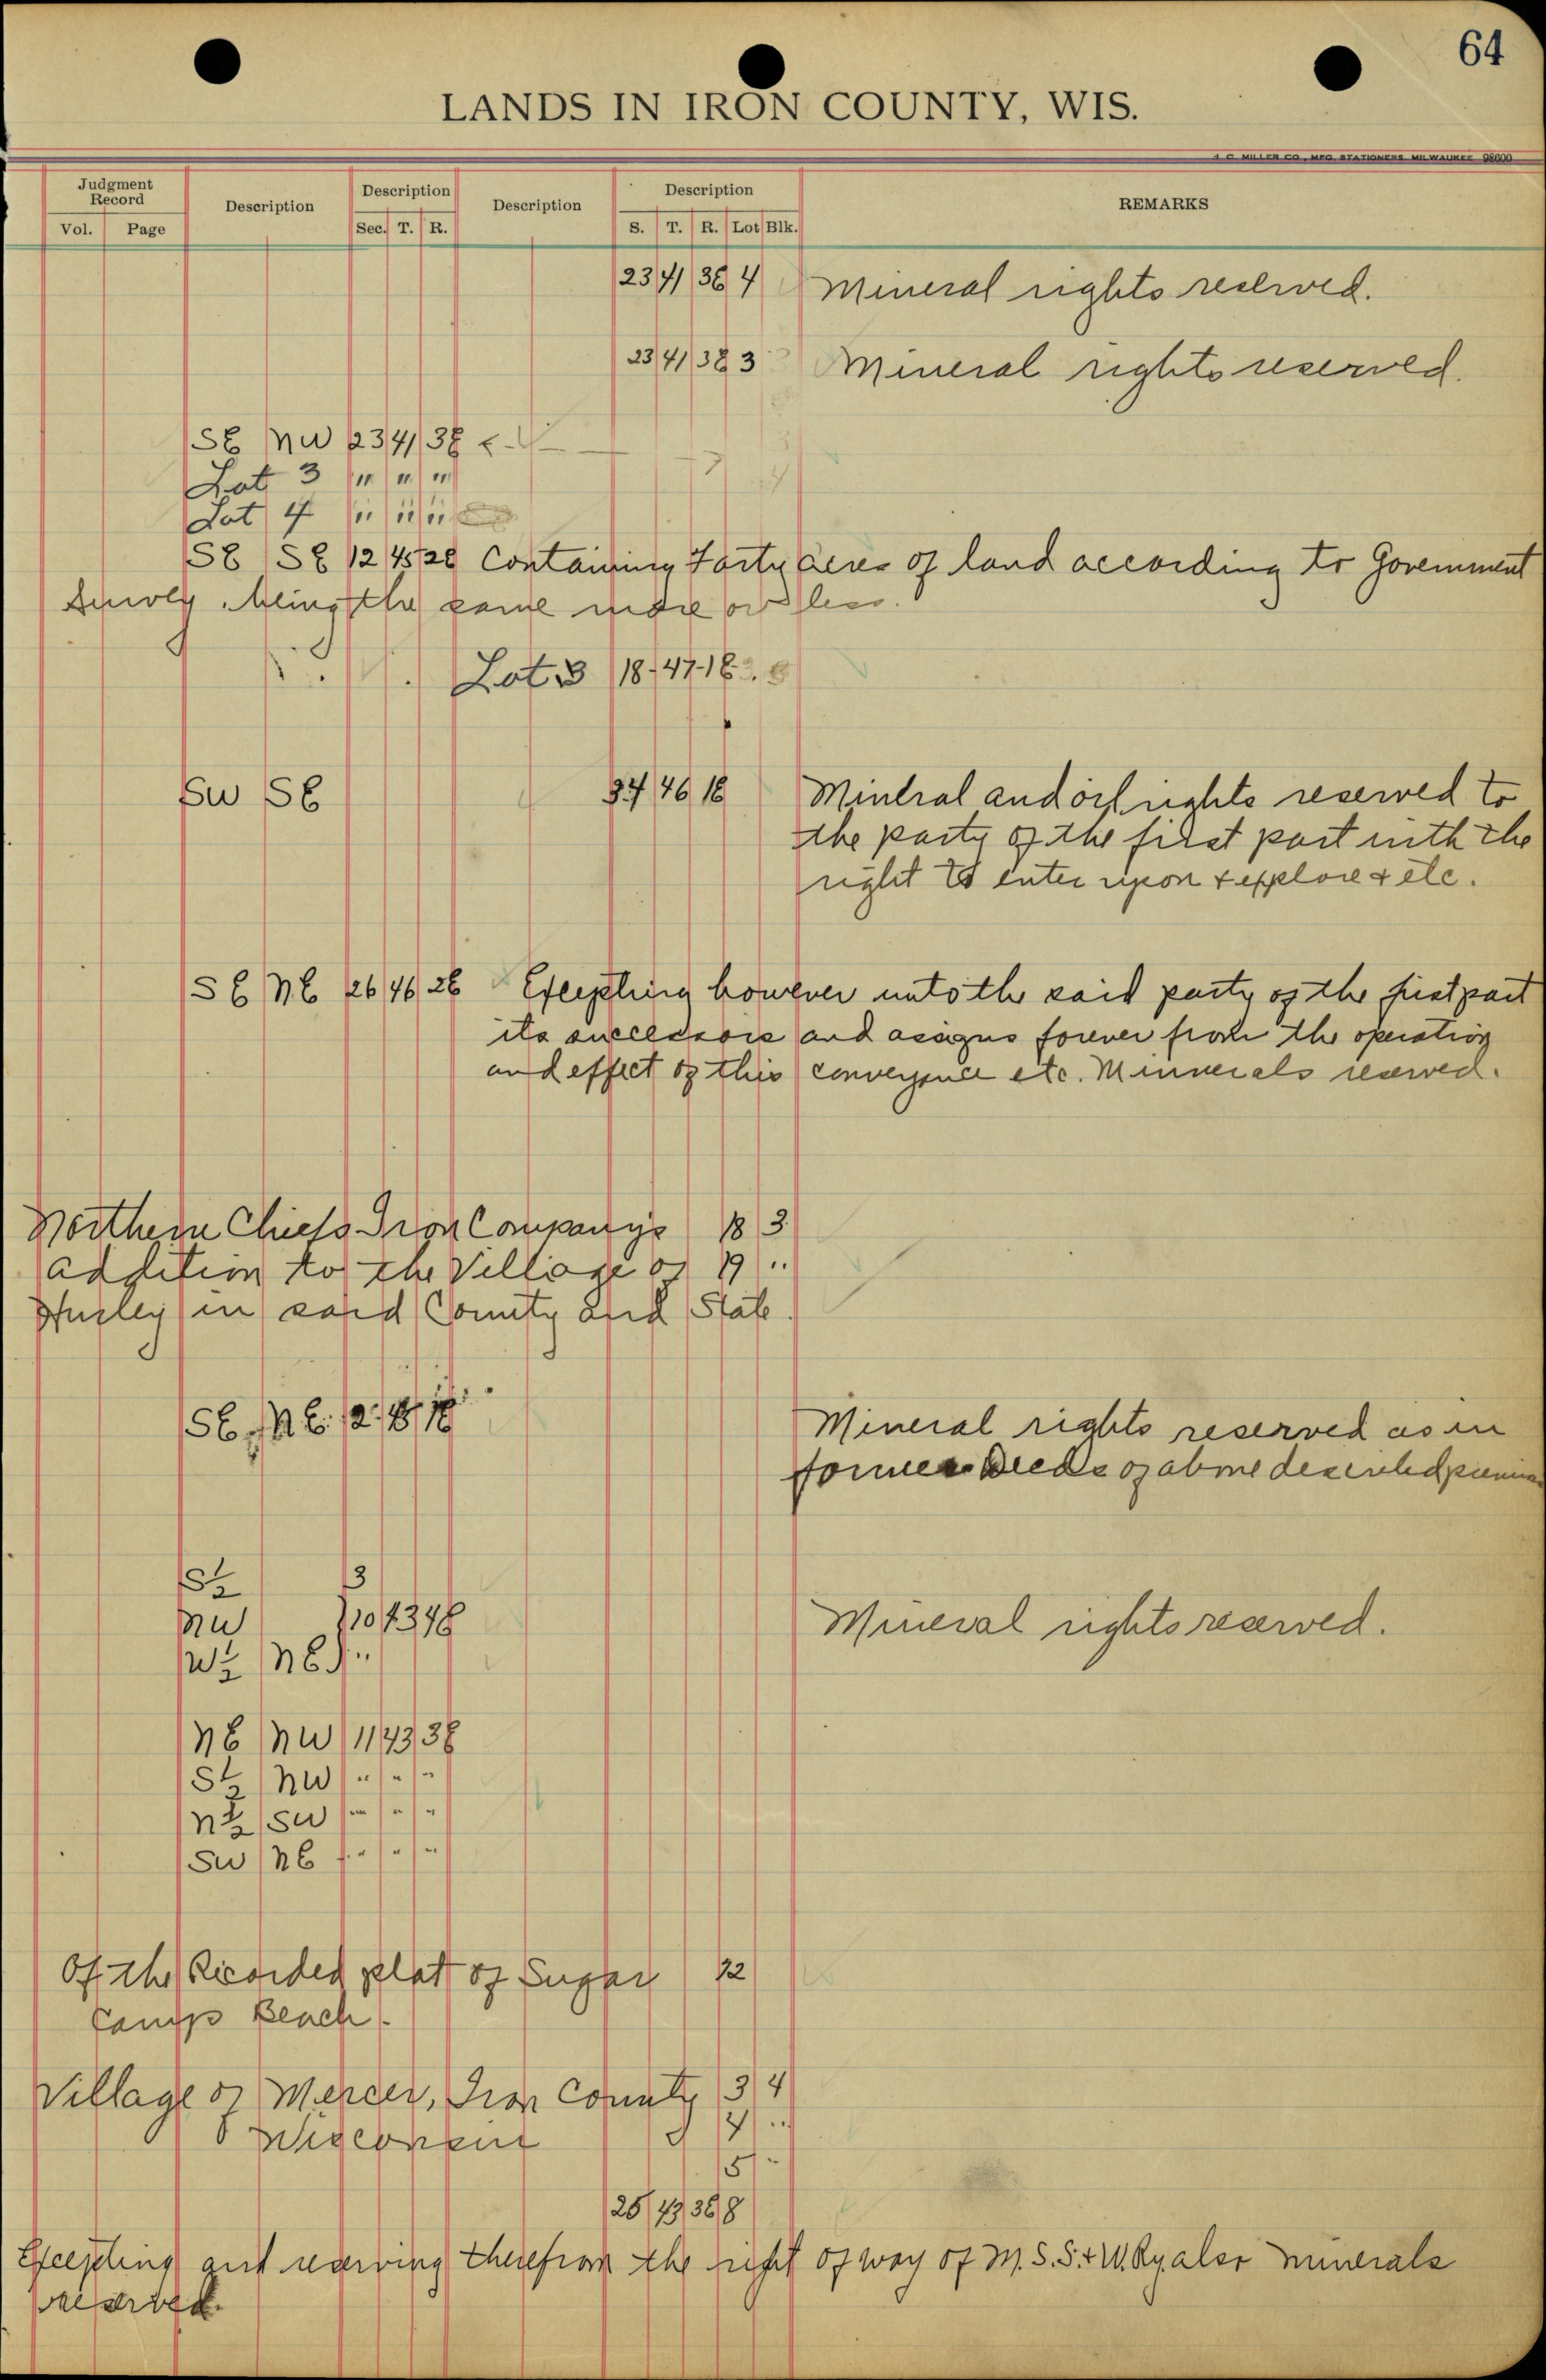 64
LANDS IN IRON COUNTY, WIS.
H. C. MILLER CO., MFG. STATIONERS, MILWAUKEE 98600
Judgment Record
Description
Description
Description
Description
REMARKS
Vol. Page
Sec. T. R.
S. T. R. Lot Blk.
23 41 3E 4 Mineral rights reserved.
23 41 3E 3 Mineral rights reserved.
SE NW 23 41 3E
Lot 3 " " "
Lot 4 " " "
SE SE 12 45 2E Containing Forty acres of land according to Government
Survey, being the same more or less.
Lot 3 18-47-1E
SW SE 34 46 1E Mineral and oil rights reserved to
the party of the first part with the
right to enter upon & explore & etc.
SE NE 26 46 2E Excepting however unto the said party of the first part
its successors and assigns forever from the operation
and effect of this conveyance etc. Minnerals reserved.
Northern Chiefs Iron Company's 18 3
addition to the Village of 19 "
Hurley in said County and State.
SE NE 12 45 1E
Mineral rights reserved as in
former Deeds of above described
S½ 3
NW 10 43 4E Mineral rights reserved.
W½ NE "
NE NW 11 43 3E
S½ NW " " "
N½ SW " " "
SW NE " " "
Of the Recorded plat of Sugar 12
Camp Beach.
Village of Mercer, Iron County 3 4
Wisconsin 4 "
5 "
25 43 3E 8
Excepting and reserving therefrom the right of way of M.S.S.&W.Ry also minerals
reserved.